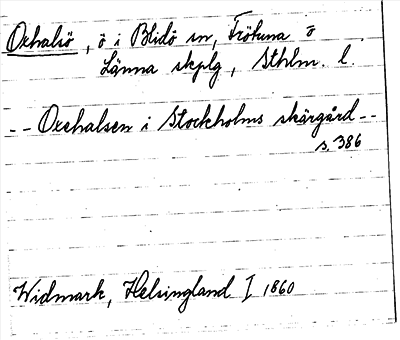 Oxhalsö, ö i Blidö sn, Frötuna o
Länna skplg, Sthlm. l.
-- Oxehalsen i Stockholms skärgård --
s. 386
Widmark, Helsingland I 1860